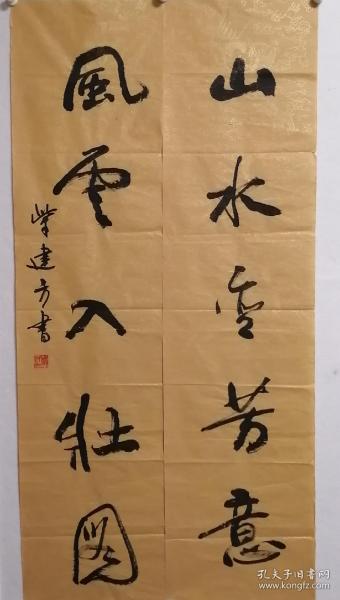 山水含芳意
風雲入壯圖
柴建方書
孔夫子旧书网
www.kongfz.com